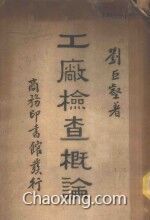 劉巨壑著
工廠檢查概論
商務印書館發行
中文小說網
www.chaoxing.com